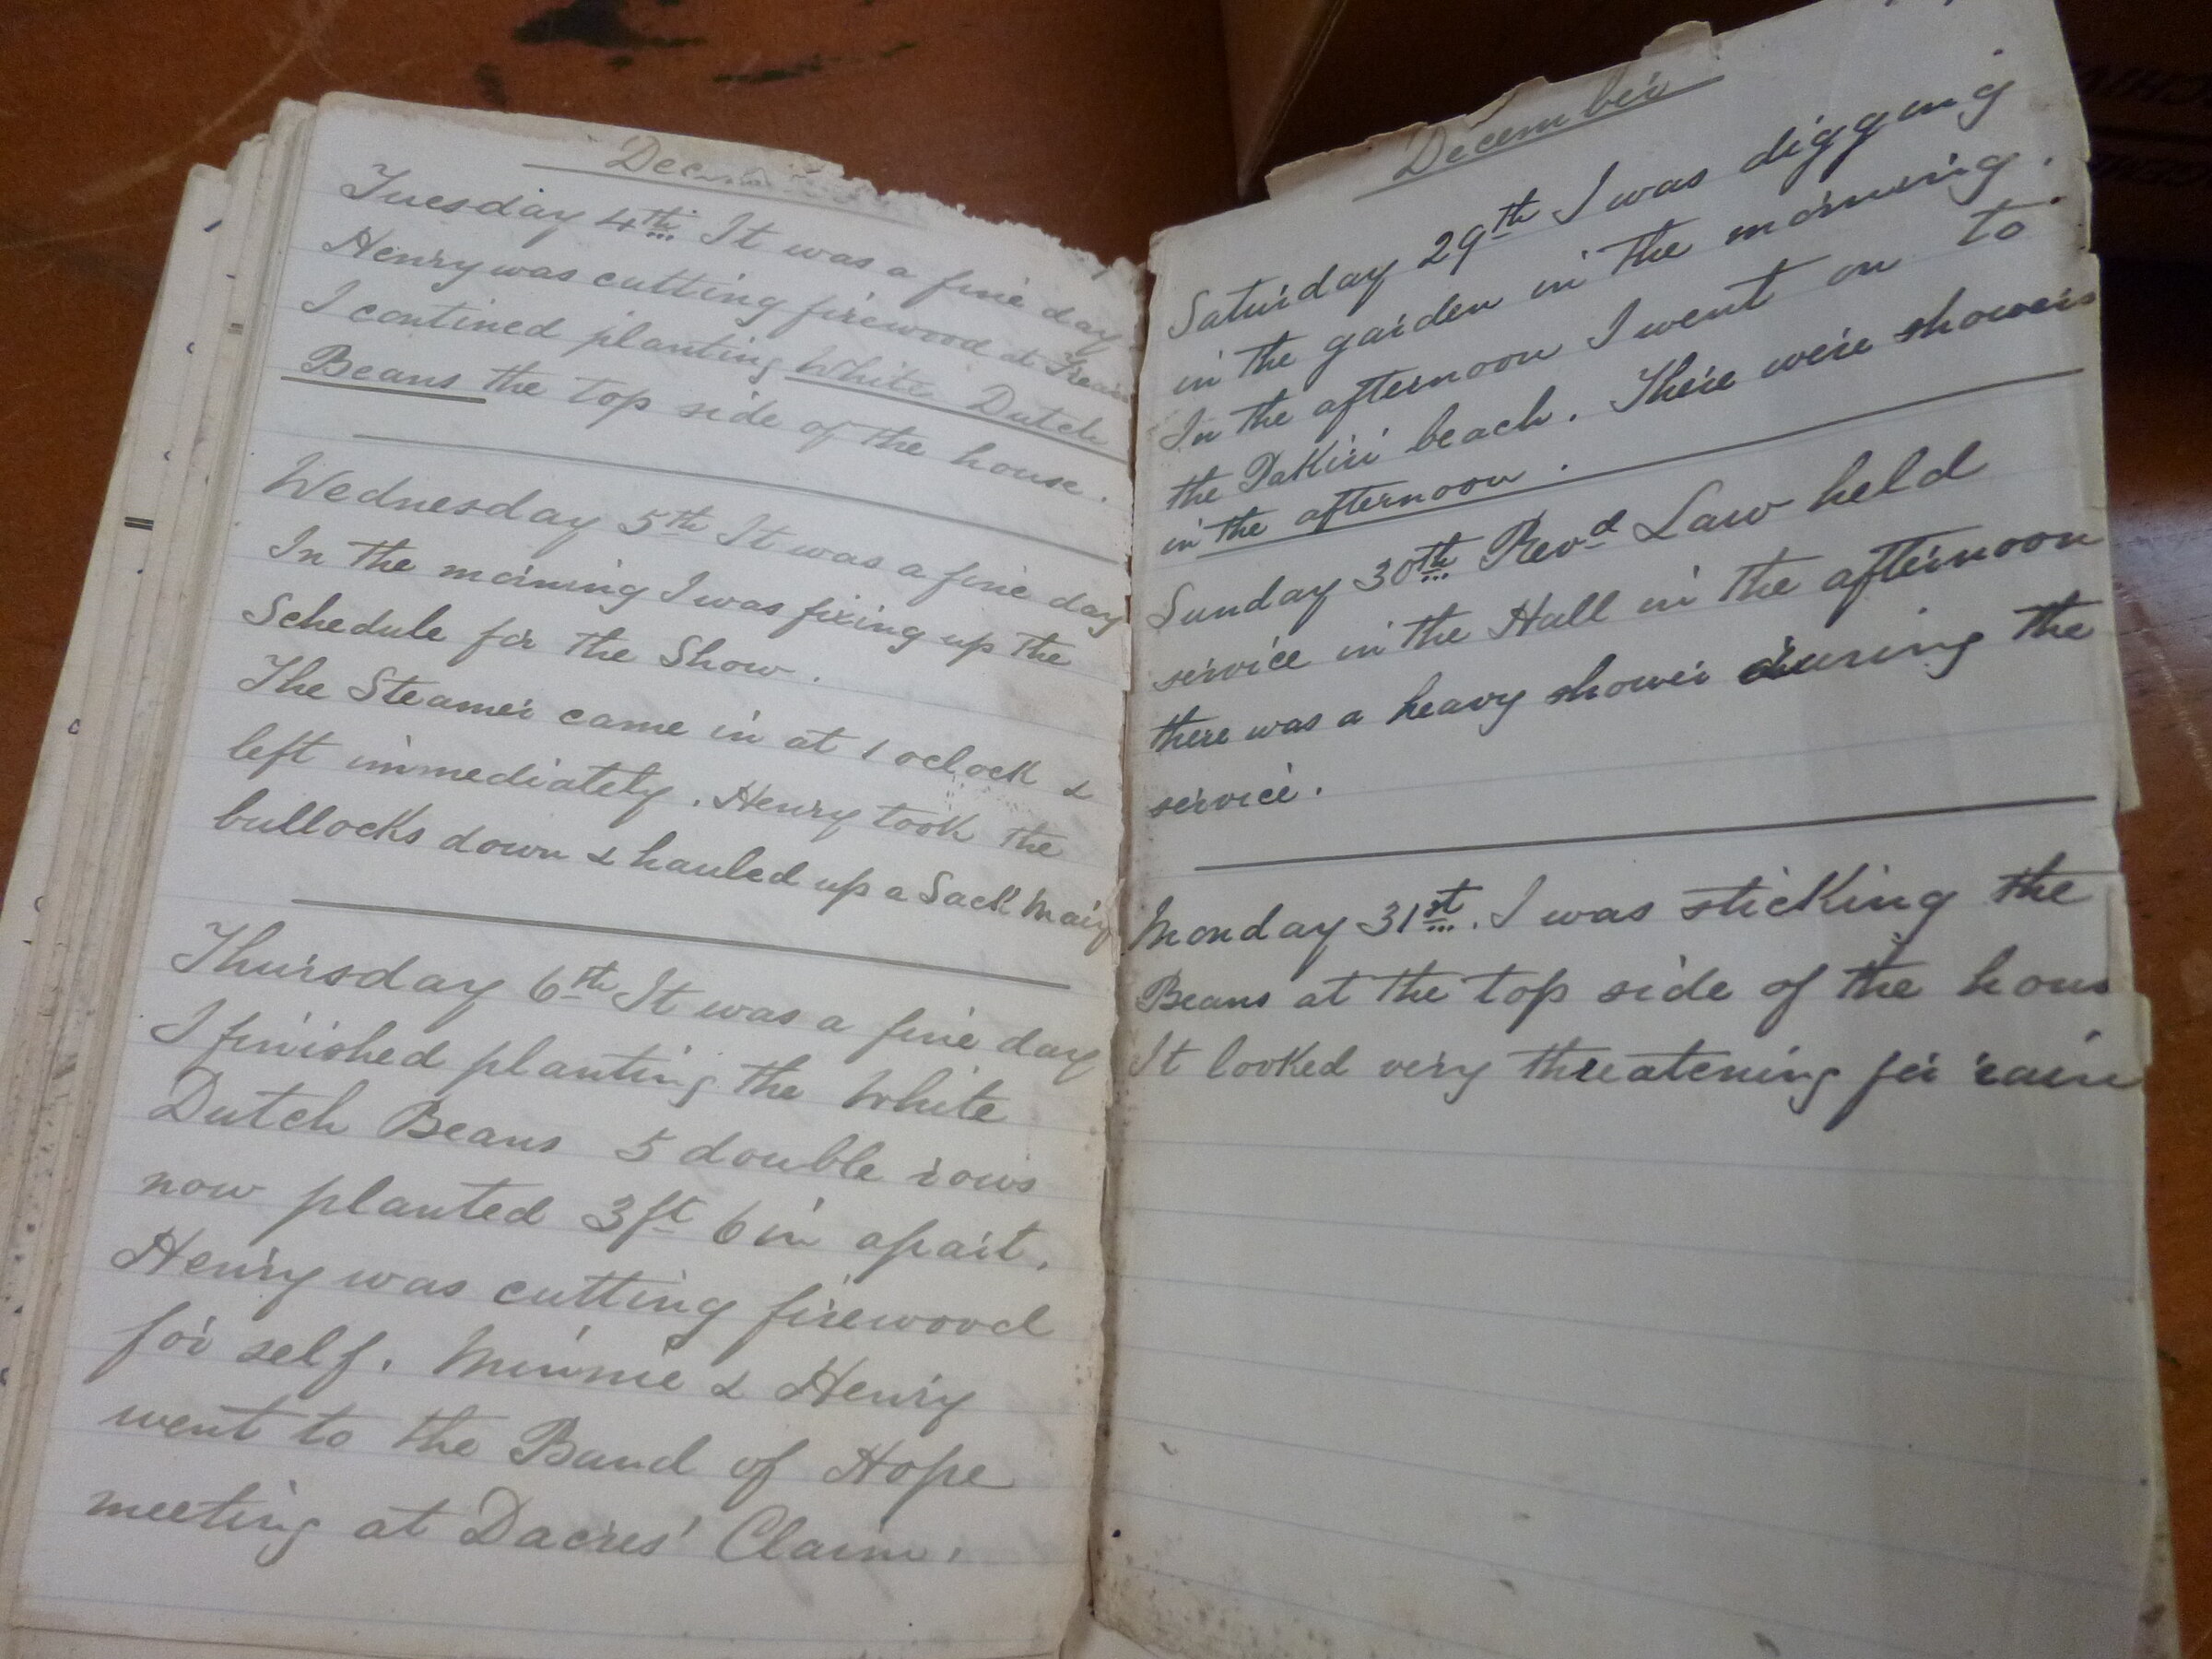 December
Tuesday 4th It was a fine day
Henry was cutting firewood at
I contined planting White Dutch
Beans the top side of the house.
Wednesday 5th It was a fine day
In the morning I was fixing up the
Schedule for the Show.
The Steamer came in at 1 oclock &
left immediately. Henry took the
bullocks down & hauled up a Sack
Thursday 6th It was a fine day
I finished planting the White
Dutch Beans 5 double rows
now planted 3ft 6in apart.
Henry was cutting firewood
for self. Minnie & Henry
went to the Band of Hope
meeting at Dacres' Claim.
December
Saturday 29th I was digging
in the garden in the morning.
In the afternoon I went on to
the Pakiri beach. There were showers
in the afternoon.
Sunday 30th Revd Law held
service in the Hall in the afternoon
there was a heavy shower during the
service.
Monday 31st. I was sticking the
Beans at the top side of the hous
It looked very threatening for rain